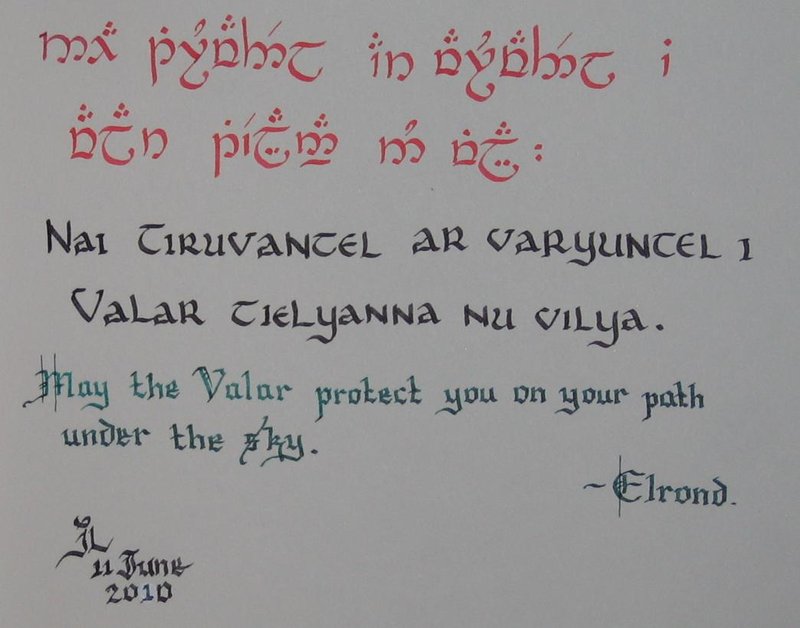 Nai Tiruvantel ar varyuntel i
Valar tielyanna nu vilya.
May the Valar protect you on your path
under the sky.
~Elrond.
JL
11 June
2010